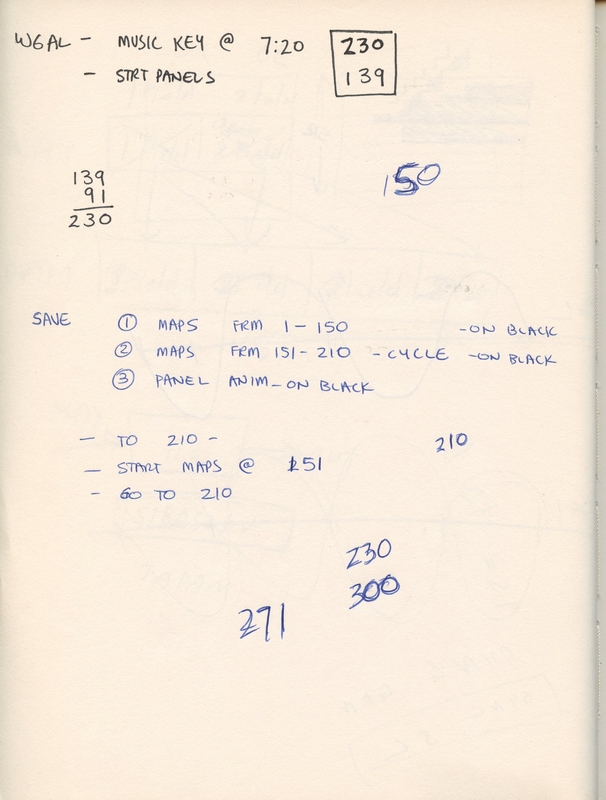 WGAL - MUSIC KEY @ 7:20 230
- STRT PANELS 139
150
139
91
230
SAVE ① MAPS FRM 1-150 -ON BLACK
② MAPS FRM 151-210 -CYCLE -ON BLACK
③ PANEL ANIM-ON BLACK
- TO 210 -
210
- START MAPS @ 151
- GO TO 210
230
300
271